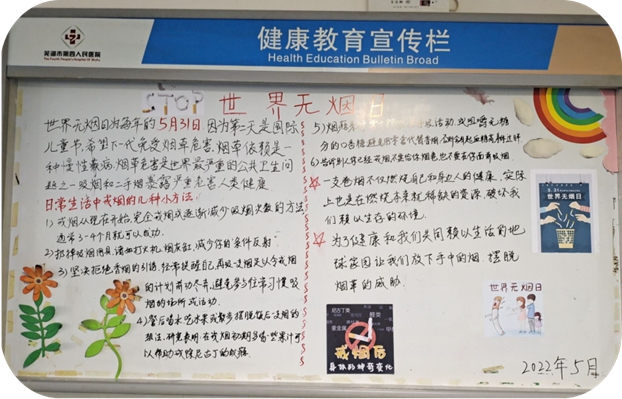 芜湖市第四人民医院
健康教育宣传栏
Health Education Bulletin Broad
STOP 世界无烟日
世界无烟日为每年的5月31日,因为第二天是国际
儿童节,希望下一代免受烟草危害。烟草依赖是一
种慢性疾病,烟草危害是世界最严重的公共卫生问
题之一,吸烟和二手烟暴露严重危害人类健康。
日常生活中戒烟的几种小方法:
1)戒烟从现在开始,完全戒烟或逐渐减少吸烟次数的方法
通常3-4个月就可以成功。
2)扔掉吸烟用具,诸如打火机,烟灰缸,减少你的条件反射
3)坚决拒绝香烟的引诱,经常提醒自己,再吸一支足以令戒烟
的计划前功尽弃,避免参与往常习惯吸
烟的场所或活动
4)餐后喝水、吃水果或散步摆脱饭后一支烟的
想法,研究表明,在戒烟初期多喝一些果汁可
以帮助戒除尼古丁的
5)烟瘾来
分的口香糖
一支卷烟不仅燃烧自己和身边人的健康,实际
上也是在燃烧未来就稀缺的资源,破坏我
们赖以生存的环境
为了健康和我们共同赖以生活的地
球家园让我们放下手中的烟,摆脱
烟草的威胁
世界无烟日
世界无烟日
戒烟后
身体的神奇变化
2022年5月